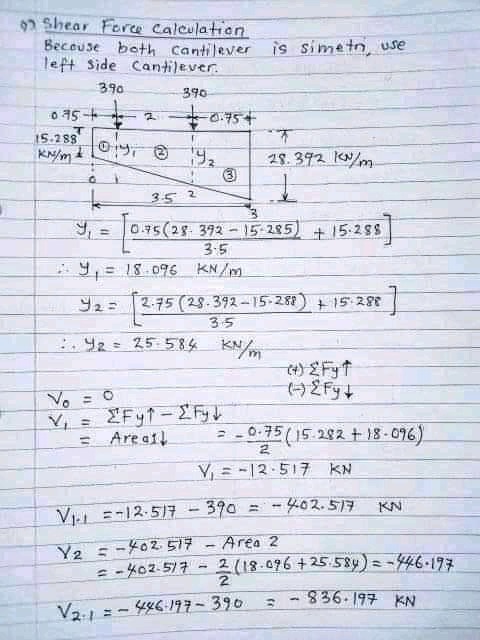 9) Shear Force Calculation
Because both cantilever is simetri, use
left side cantilever.
390 390
0.75 2 0.75
15.288 KN/m ① y₁ ② y₂ ③ 28.392 KN/m
0 1 2
3.5
3
y₁ = [0.75(28.392 - 15.285) / 3.5 + 15.288]
∴ y₁ = 18.096 KN/m
y₂ = [2.75(28.392 - 15.288) / 3.5 + 15.288]
∴ y₂ = 25.584 KN/m
(+) ΣFy↑
(-) ΣFy↓
V₀ = 0
V₁ = ΣFy↑ - ΣFy↓
= Areas↓ = - 0.75/2 (15.282 + 18.096)
V₁ = -12.517 KN
V₁.₁ = -12.517 - 390 = -402.517 KN
V₂ = -402.517 - Area 2
= -402.517 - 2/2 (18.096 + 25.584) = -446.197
V₂.₁ = -446.197 - 390 = -836.197 KN